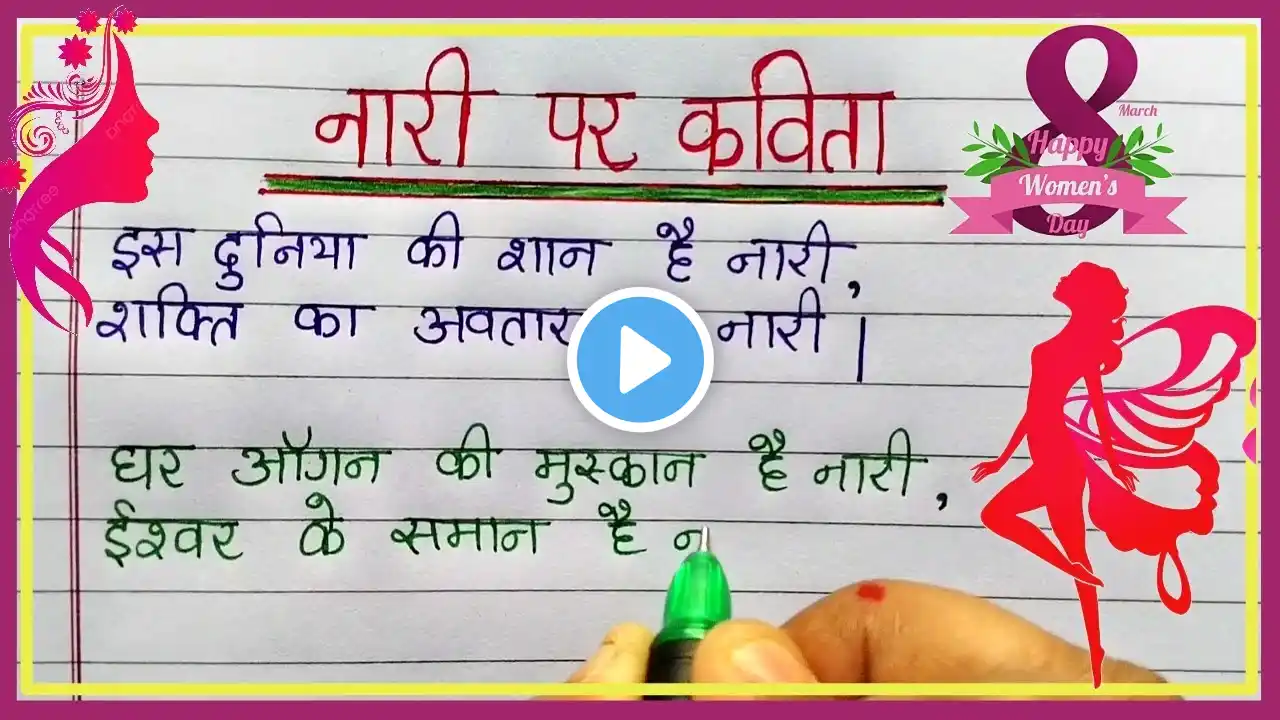 नारी पर कविता
March
Happy
Women's
Day
इस दुनिया की शान है नारी,
शक्ति का अवतार नारी।
घर आँगन की मुस्कान है नारी,
ईश्वर के समान है न